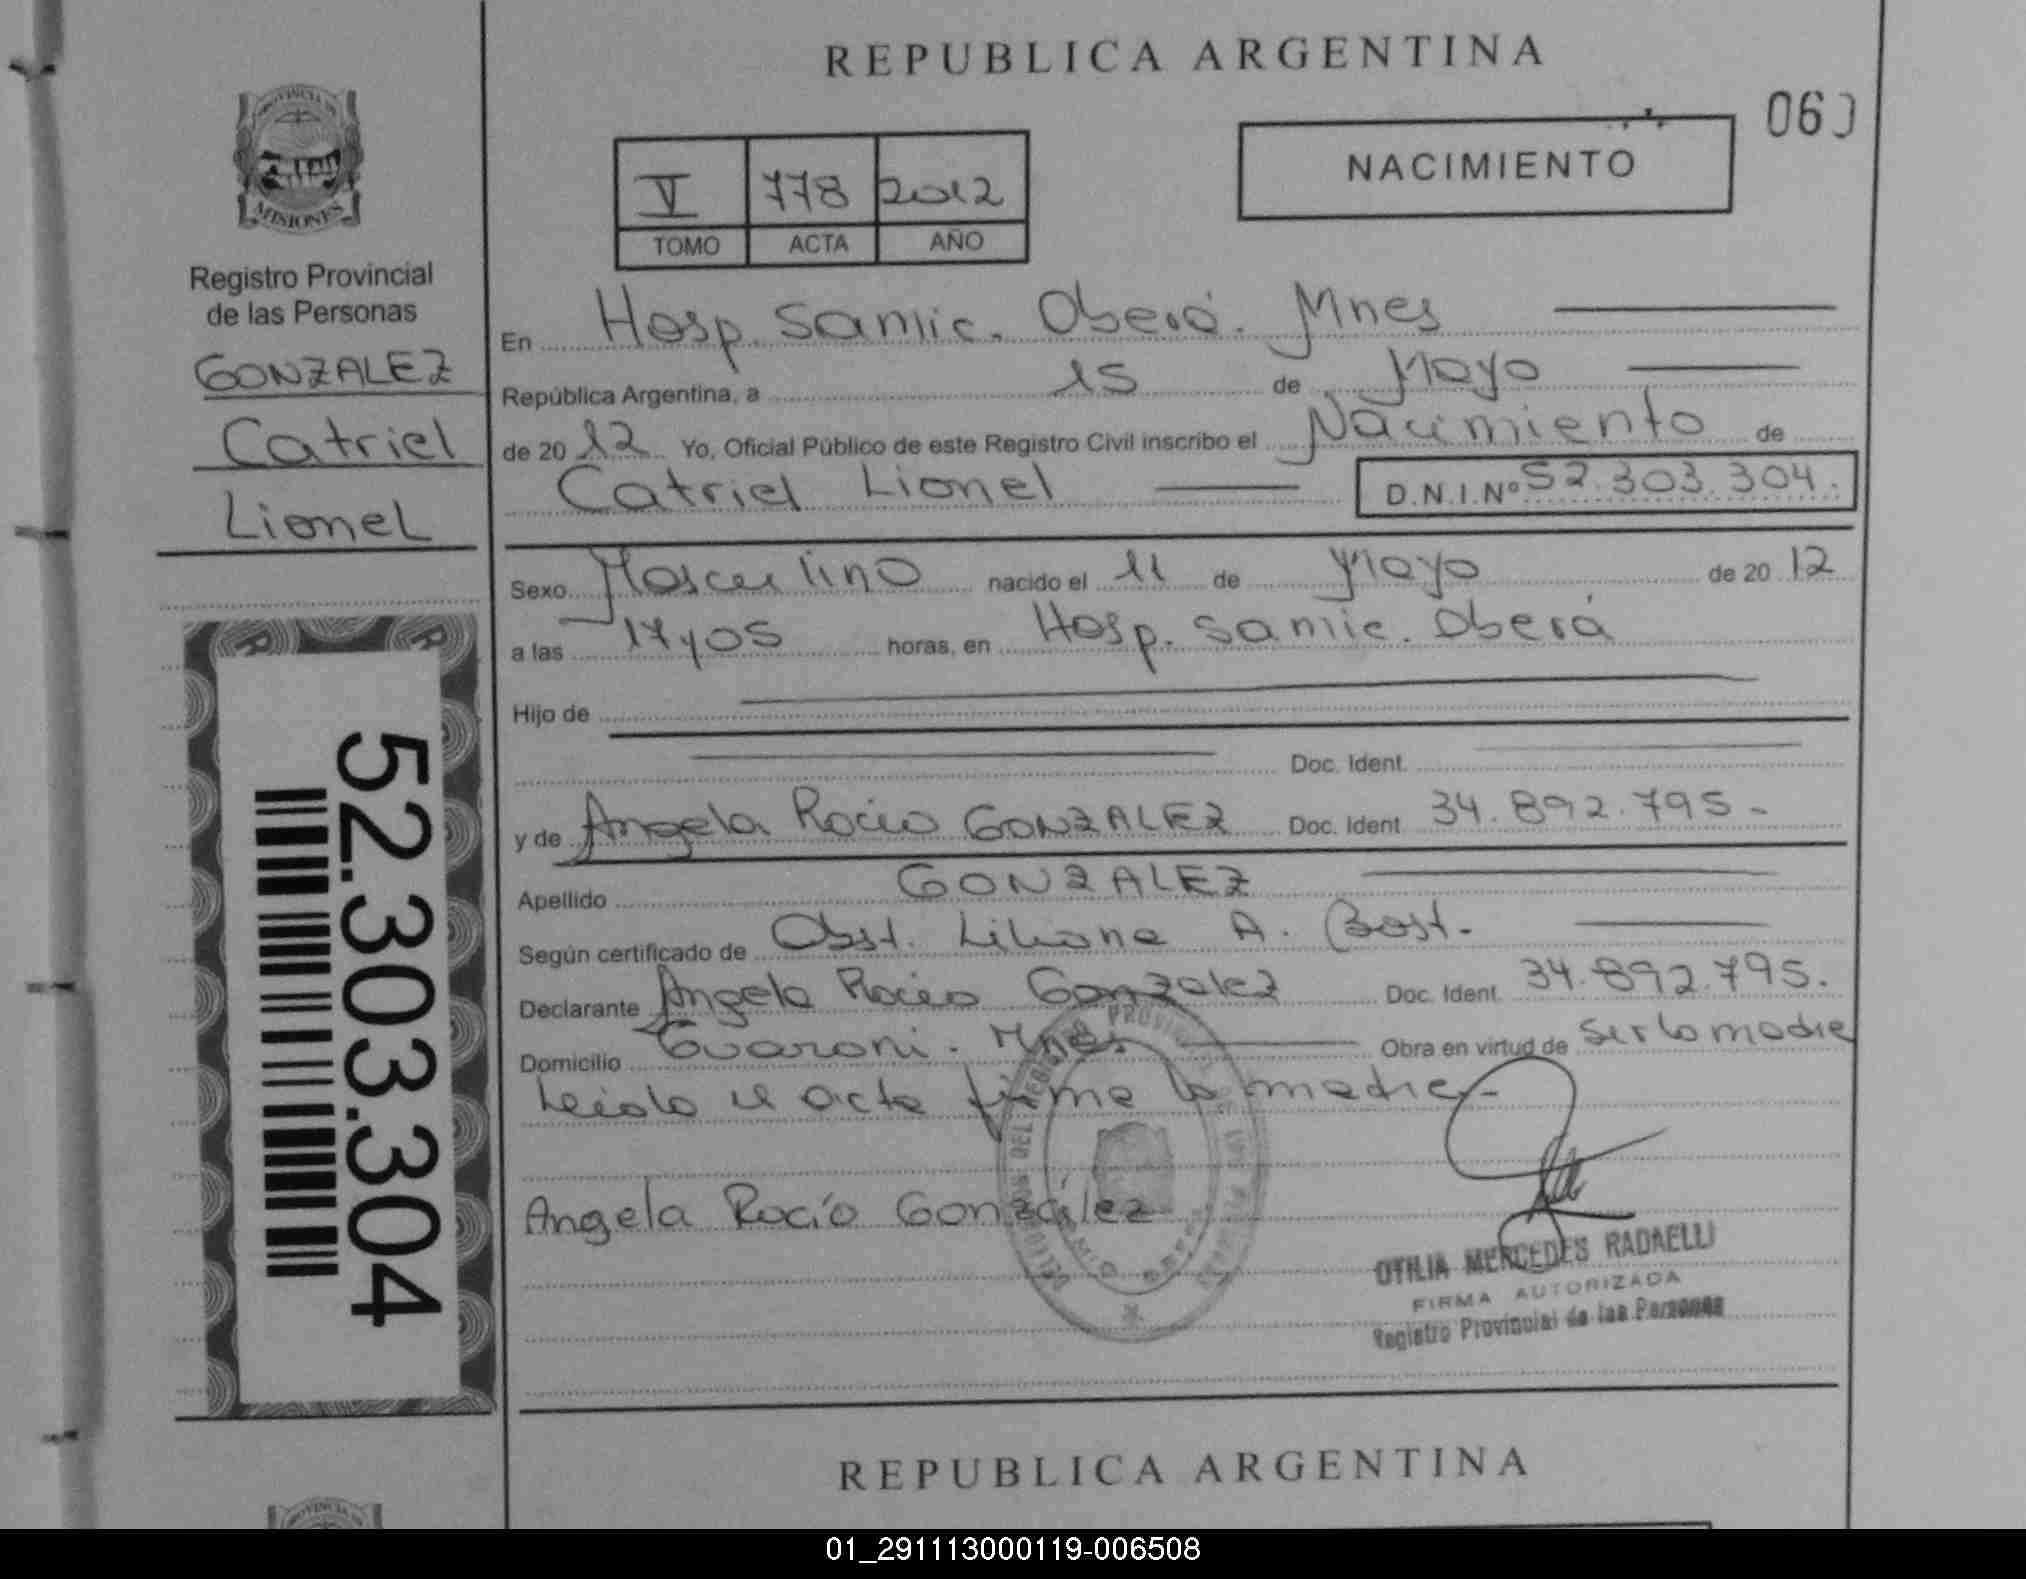 REPUBLICA ARGENTINA
060
NACIMIENTO
V 778 2012
TOMO ACTA AÑO
PROVINCIA DE
MISIONES
Registro Provincial
de las Personas
GONZALEZ
Catriel
Lionel
En Hosp. Samic. Oberá. Mnes
República Argentina, a 15 de Mayo
de 2012 Yo, Oficial Público de este Registro Civil inscribo el Nacimiento de
Catriel Lionel D.N.I.Nº 52.303.304.
Sexo Masculino nacido el 11 de Mayo de 2012
a las 17 y 05 horas, en Hosp. Samic. Oberá
Hijo de
Doc. Ident.
y de Angela Rocio GONZALEZ Doc. Ident 34.892.795.-
Apellido GONZALEZ
Según certificado de Obst. Liliana A. Bost.
Declarante Angela Rocio Gonzalez Doc. Ident. 34.892.795.
Domicilio Guarani. Mnes. Obra en virtud de ser la madre
Leida el acta firma la madre.-
Angela Rocío González
OTILIA MERCEDES RADAELLI
FIRMA AUTORIZADA
Registro Provincial de las Personas
52.303.304
REPUBLICA ARGENTINA
01_291113000119-006508